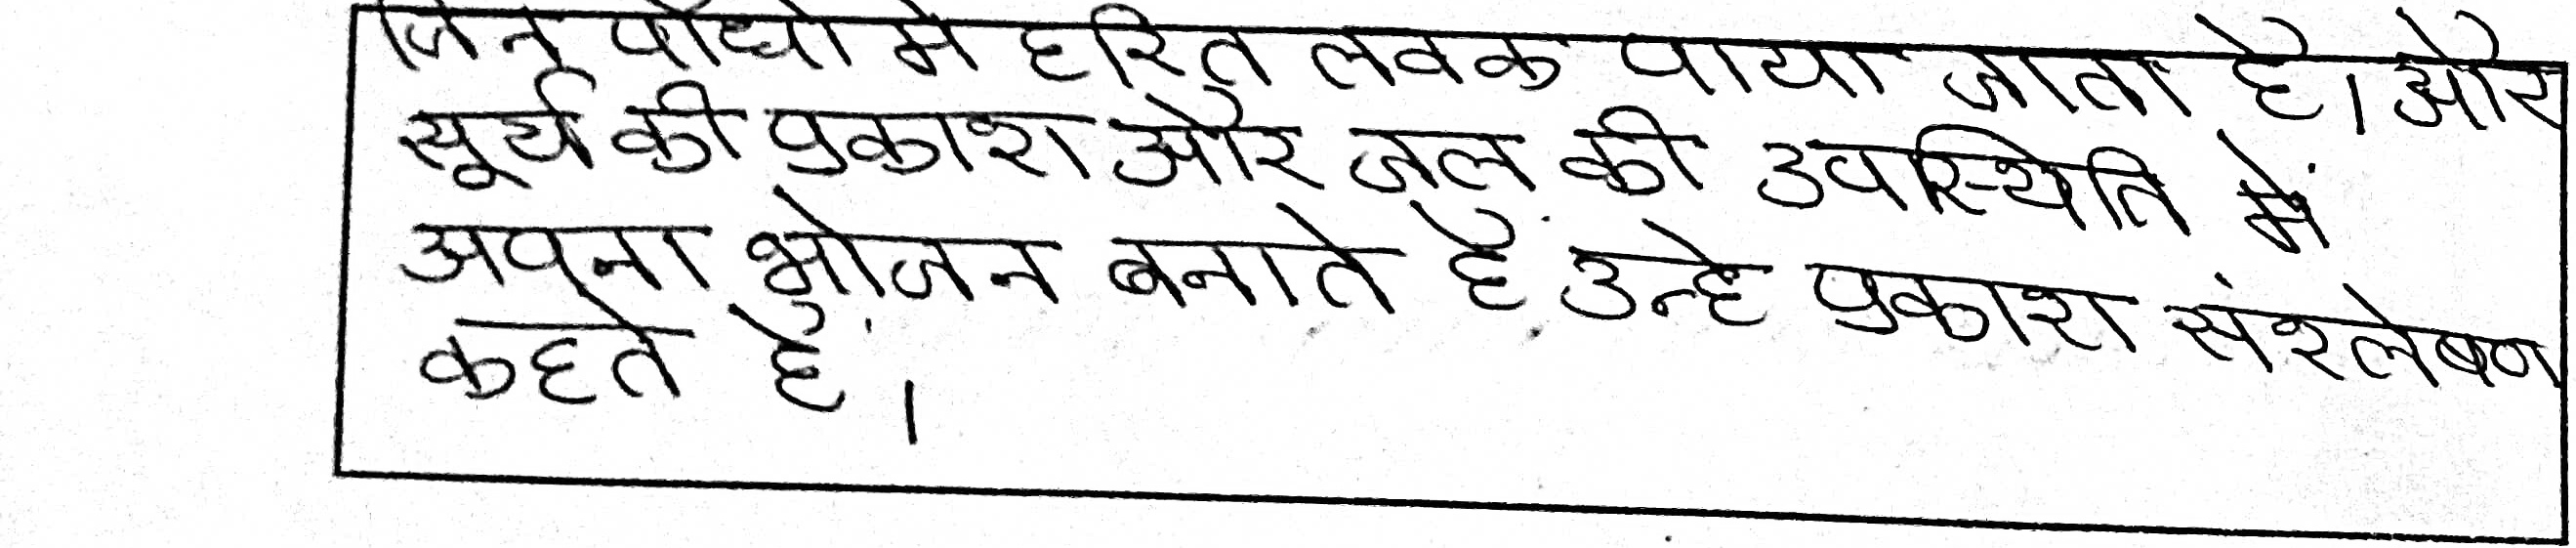 जिन पौधो मे हरित लवक पाया जाता है। और
सूर्य की प्रकाश और जल की उपस्थिति में
अपना भोजन बनाते है उन्हे प्रकाश संश्लेषण
कहते है।